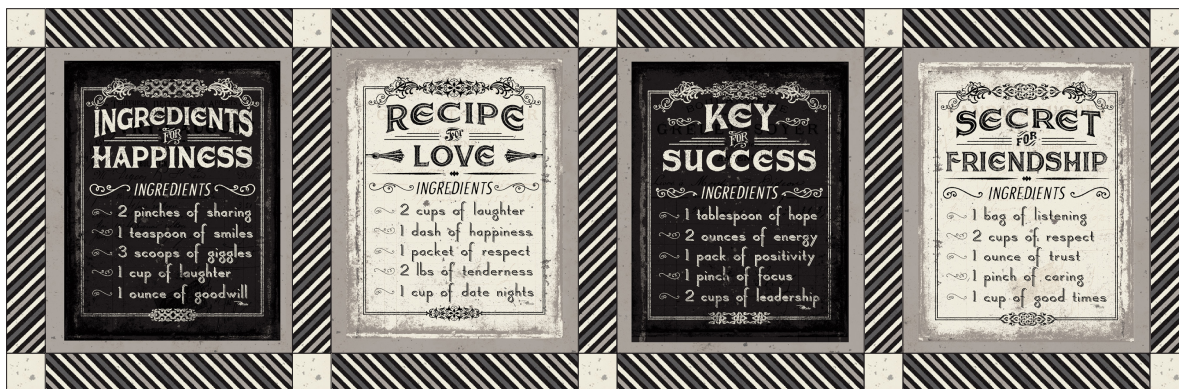 INGREDIENTS
FOR
HAPPINESS
INGREDIENTS
2 pinches of sharing
1 teaspoon of smiles
3 scoops of giggles
1 cup of laughter
1 ounce of goodwill
RECIPE
For
LOVE
INGREDIENTS
2 cups of laughter
1 dash of happiness
1 packet of respect
2 lbs of tenderness
1 cup of date nights
KEY
FOR
SUCCESS
INGREDIENTS
1 tablespoon of hope
2 ounces of energy
1 pack of positivity
1 pinch of focus
2 cups of leadership
SECRET
FOR
FRIENDSHIP
INGREDIENTS
1 bag of listening
2 cups of respect
1 ounce of trust
1 pinch of caring
1 cup of good times